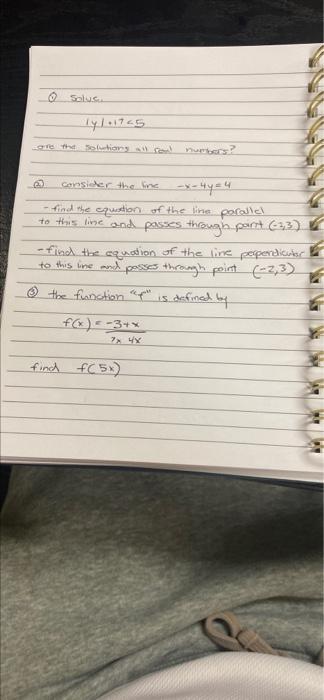 ① Solve.
|y|+17<5
are the solutions all real numbers?
② consider the line -x-4y=4
- find the equation of the line parallel
to this line and passes through point (-2,3)
- find the equation of the line perpendicular
to this line and passes through point (-2,3)
③ the function "f" is defined by
f(x) = -3+x
7x 4x
find f(5x)